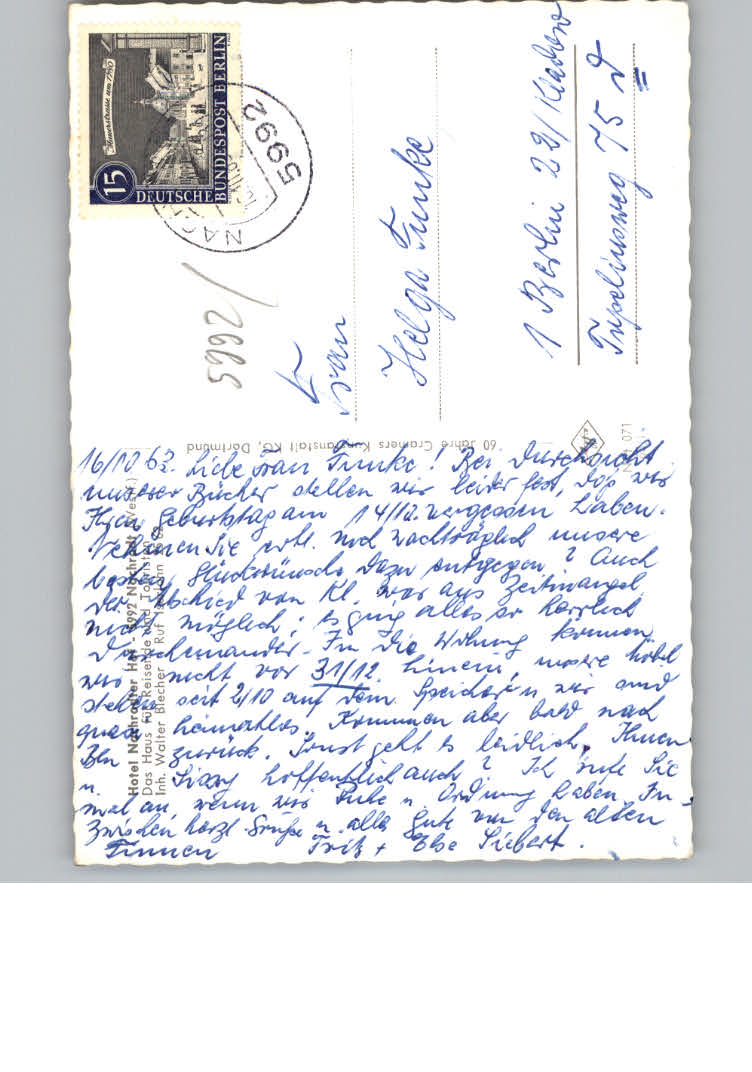 Mauerstrasse um 1780
15
DEUTSCHE
BUNDESPOST BERLIN
5992
NACH
5992
Frau
Helga Funke
1 Berlin 22/Kladow
75 d
60 Jahre Cramers Kunstanstalt KG, Dortmund
071
Hotel Nachrodter Hof - 5992 Nachrodt (Westf.)
Das Haus für Reisende und Touristen
Inh. Walter Blecher Ruf
16/10 63. Liebe Frau Funke! Bei Durchsicht
unserer Bücher stellen wir leider fest, daß wir
Ihren Geburtstag am 14/10. vergessen haben.
Nehmen Sie evtl. noch nachträglich unsere
besten Glückwünsche dazu entgegen? Auch
der Abschied von Kl. war aus Zeitmangel
nicht möglich; es ging alles so herrlich
durcheinander. In die Wohnung kommen
wir nicht vor 31/12. hinein, unsere Möbel
stehen seit 2/10 auf dem Speicher u. wir sind
quasi heimatlos. Kommen aber bald nach
Bln zurück. Sonst geht es leidlich, Ihnen
u. hoffentlich auch? Ich rufe Sie
mal an, wenn wir Ruhe u. Ordnung haben. In-
zwischen herzl. Grüße u. alles Gute von den alten
Fritz + Else Siebert.